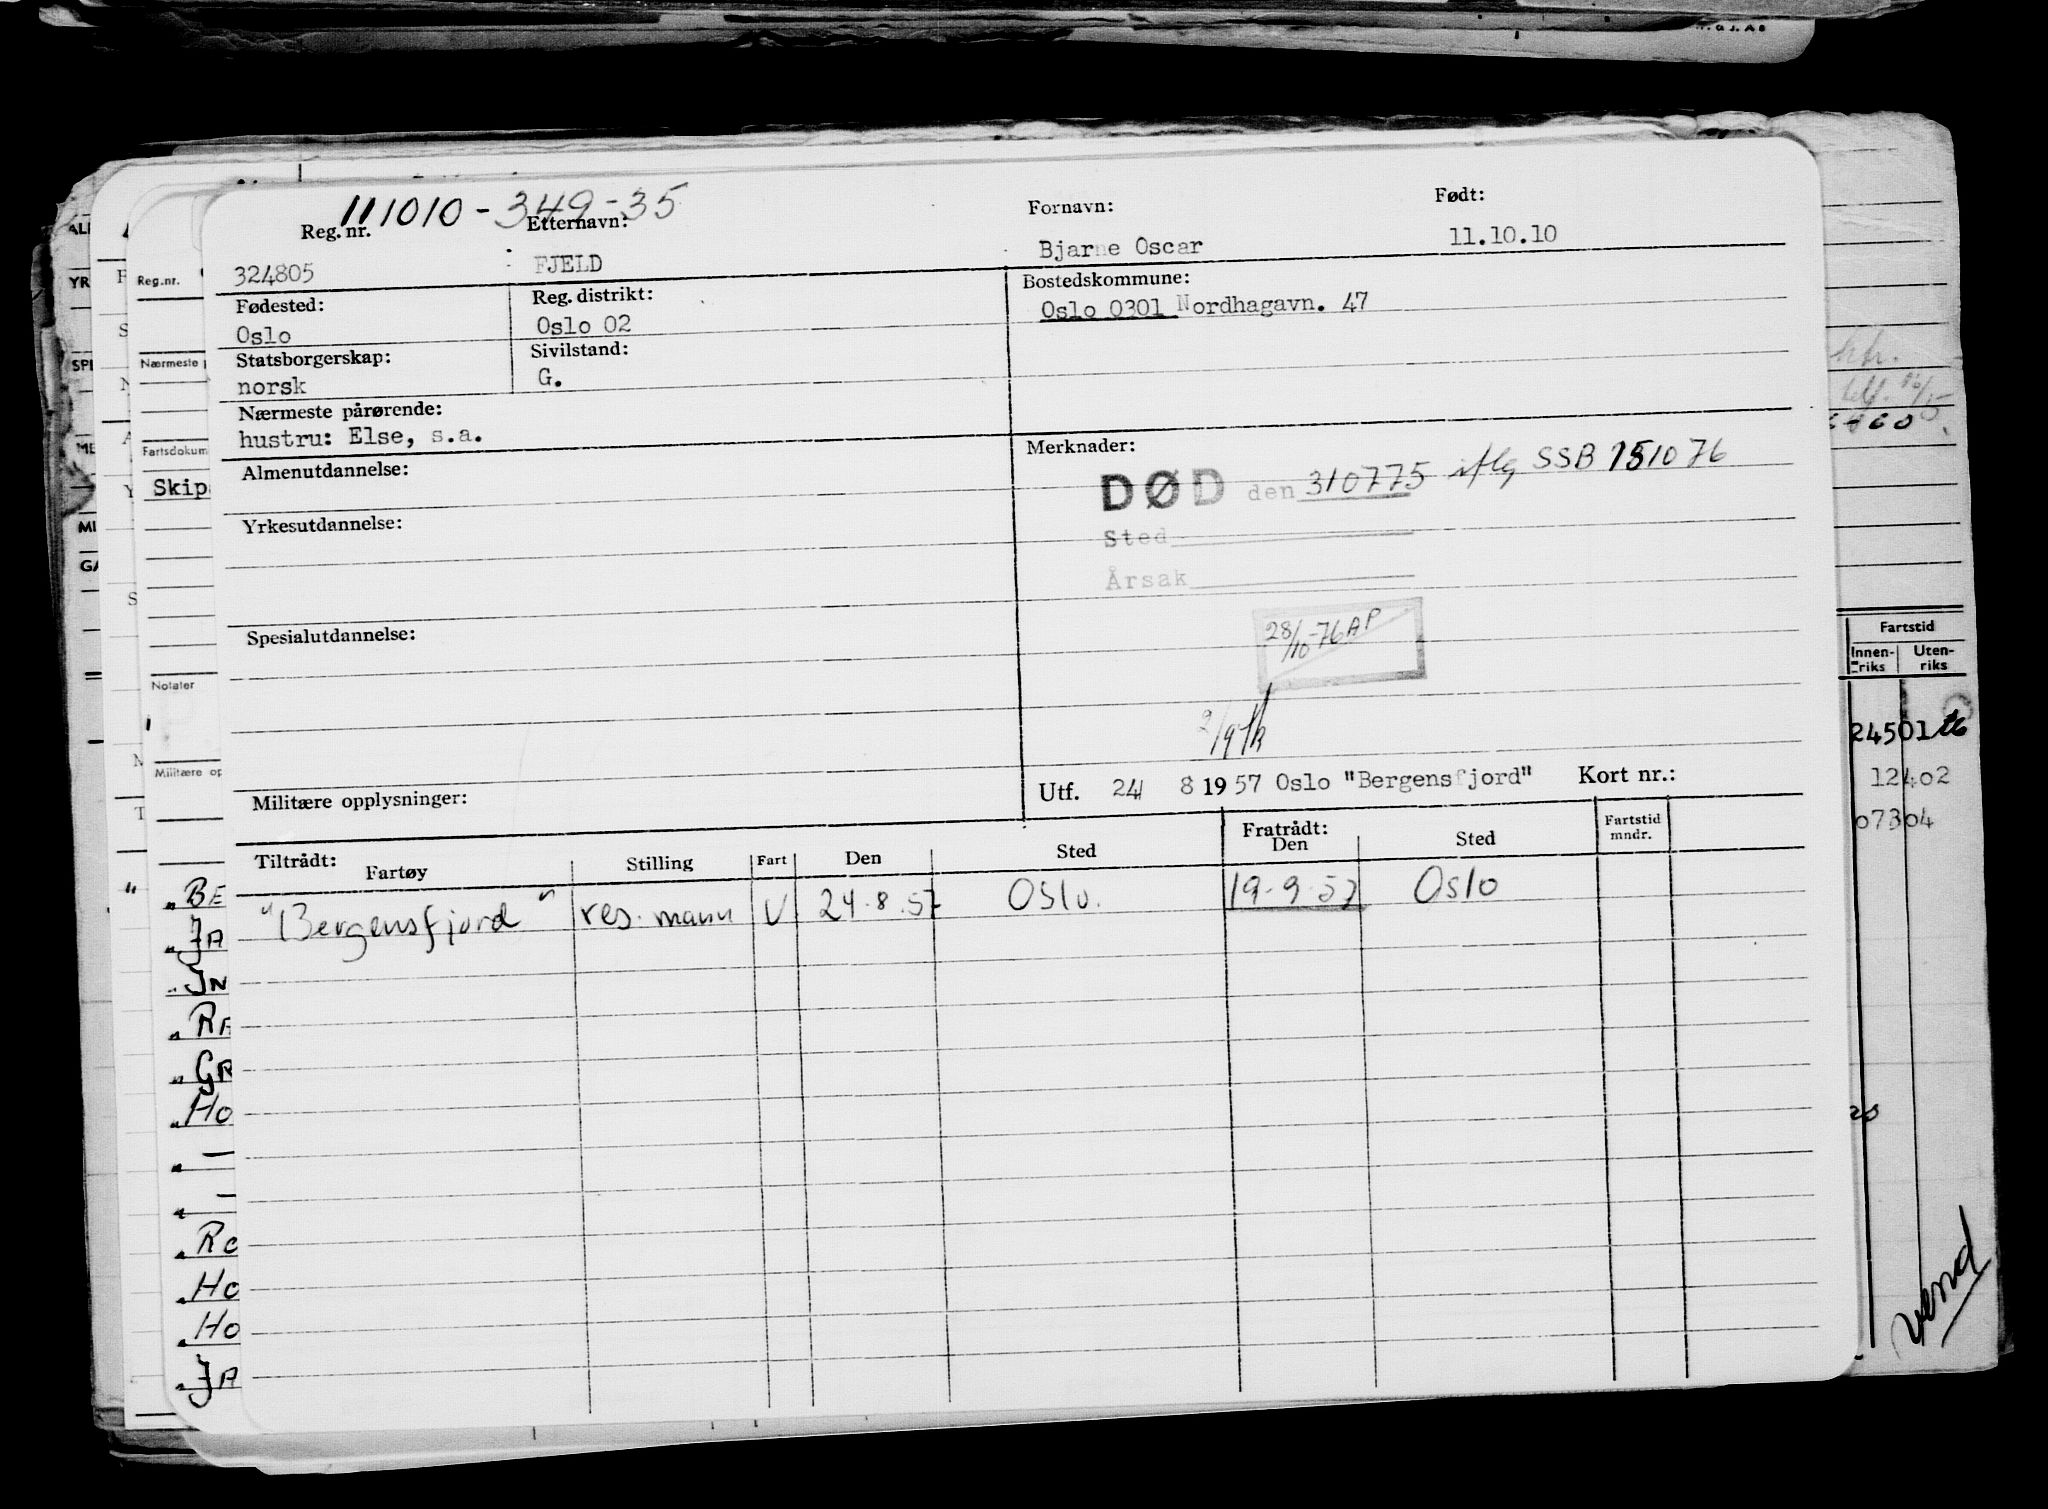 111010-349-35
Reg. nr. Etternavn: Fornavn: Født:
324805 FJELD Bjarne Oscar 11.10.10
Fødested: Reg. distrikt: Bostedskommune:
Oslo Oslo 02 Oslo 0301 Nordhagavn. 47
Statsborgerskap: Sivilstand:
norsk G.
Nærmeste pårørende:
hustru: Else, s.a.
Almenutdannelse: Merknader:
DØD den 310775 iflg SSB 151076
Yrkesutdannelse:
Sted
Årsak
Spesialutdannelse:
28/10-76 AP
Militære opplysninger: Utf. 24 8 1957 Oslo "Bergensfjord" Kort nr.:
Tiltrådt: Fratrådt:
Fartøy Stilling Fart Den Sted Den Sted Fartstid mndr.
"Bergensfjord" res. mann U 24.8.57 Oslo. 19-9-57 Oslo
Reg.nr.
Nærmeste
Fartsdokum
Skip
Notater
Militære op
BE
JA
IN
RA
GR
HO
RO
HO
HO
JA
Fartstid
Innenriks Utenriks
24501
12402
07304
vend